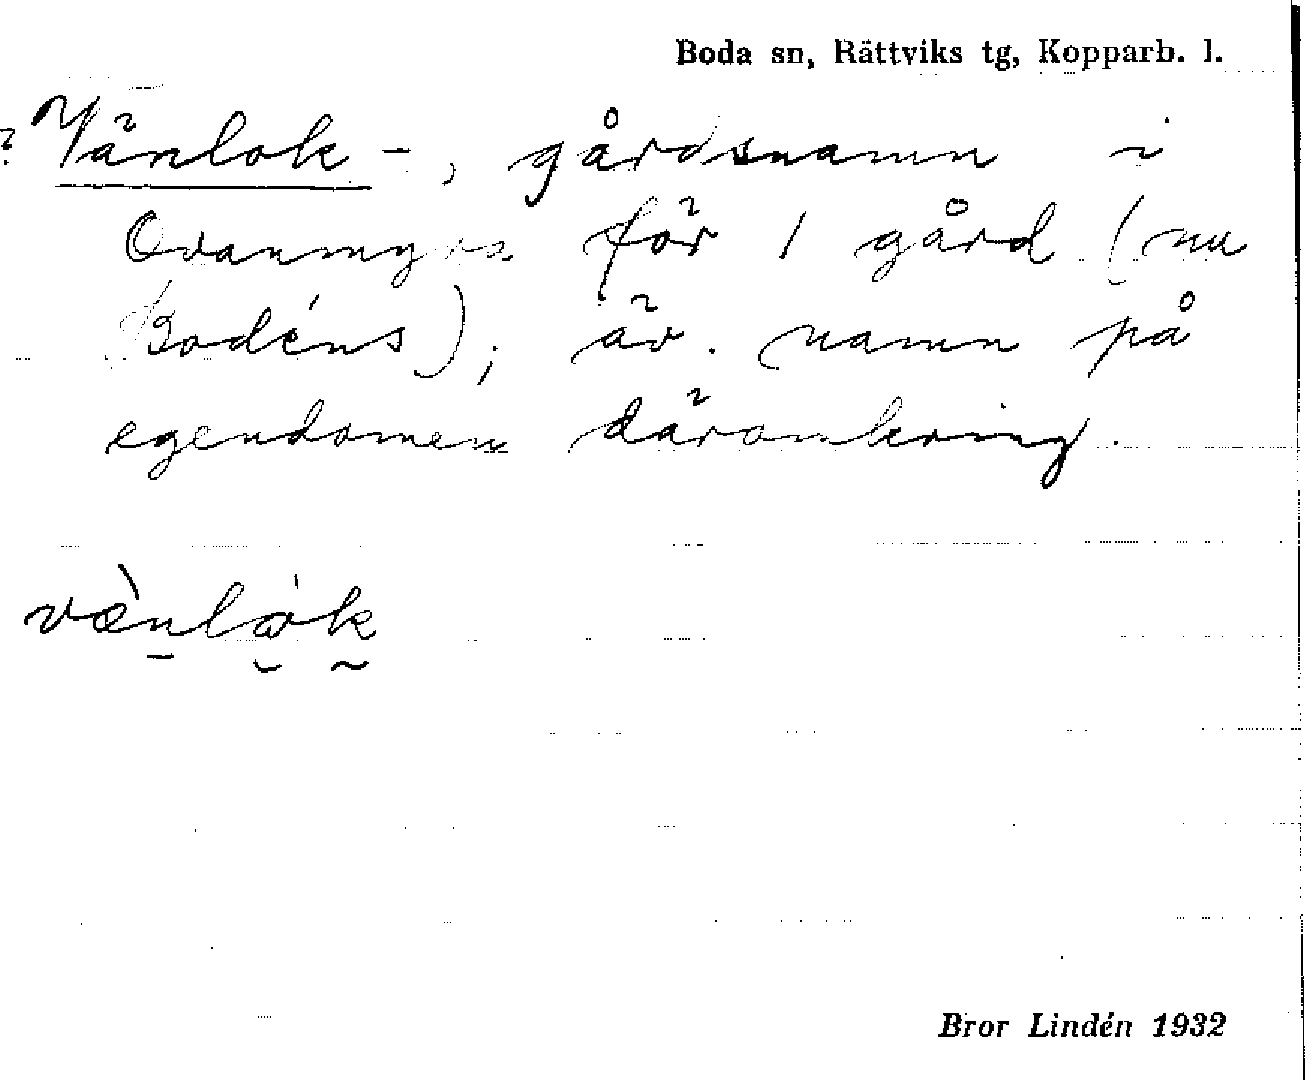 Boda sn, Rättviks tg, Kopparb. l.
? Vänlok-, gårdsnamn i
Ovanmyra för 1 gård (nu
Bodéns); äv. namn på
egendomen däromkring.
væ̀nlàk
Bror Lindén 1932